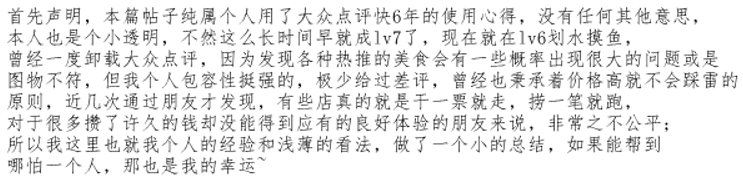 首先声明，本篇帖子纯属个人用了大众点评快6年的使用心得，没有任何其他意思，
本人也是个小透明，不然这么长时间早就成lv7了，现在就在lv6划水摸鱼，
曾经一度卸载大众点评，因为发现各种热推的美食会有一些概率出现很大的问题或是
图物不符，但我个人包容性挺强的，极少给过差评，曾经也秉承着价格高就不会踩雷的
原则，近几次通过朋友才发现，有些店真的就是干一票就走，捞一笔就跑，
对于很多攒了许久的钱却没能得到应有的良好体验的朋友来说，非常之不公平；
所以我这里也就我个人的经验和浅薄的看法，做了一个小的总结，如果能帮到
哪怕一个人，那也是我的幸运~